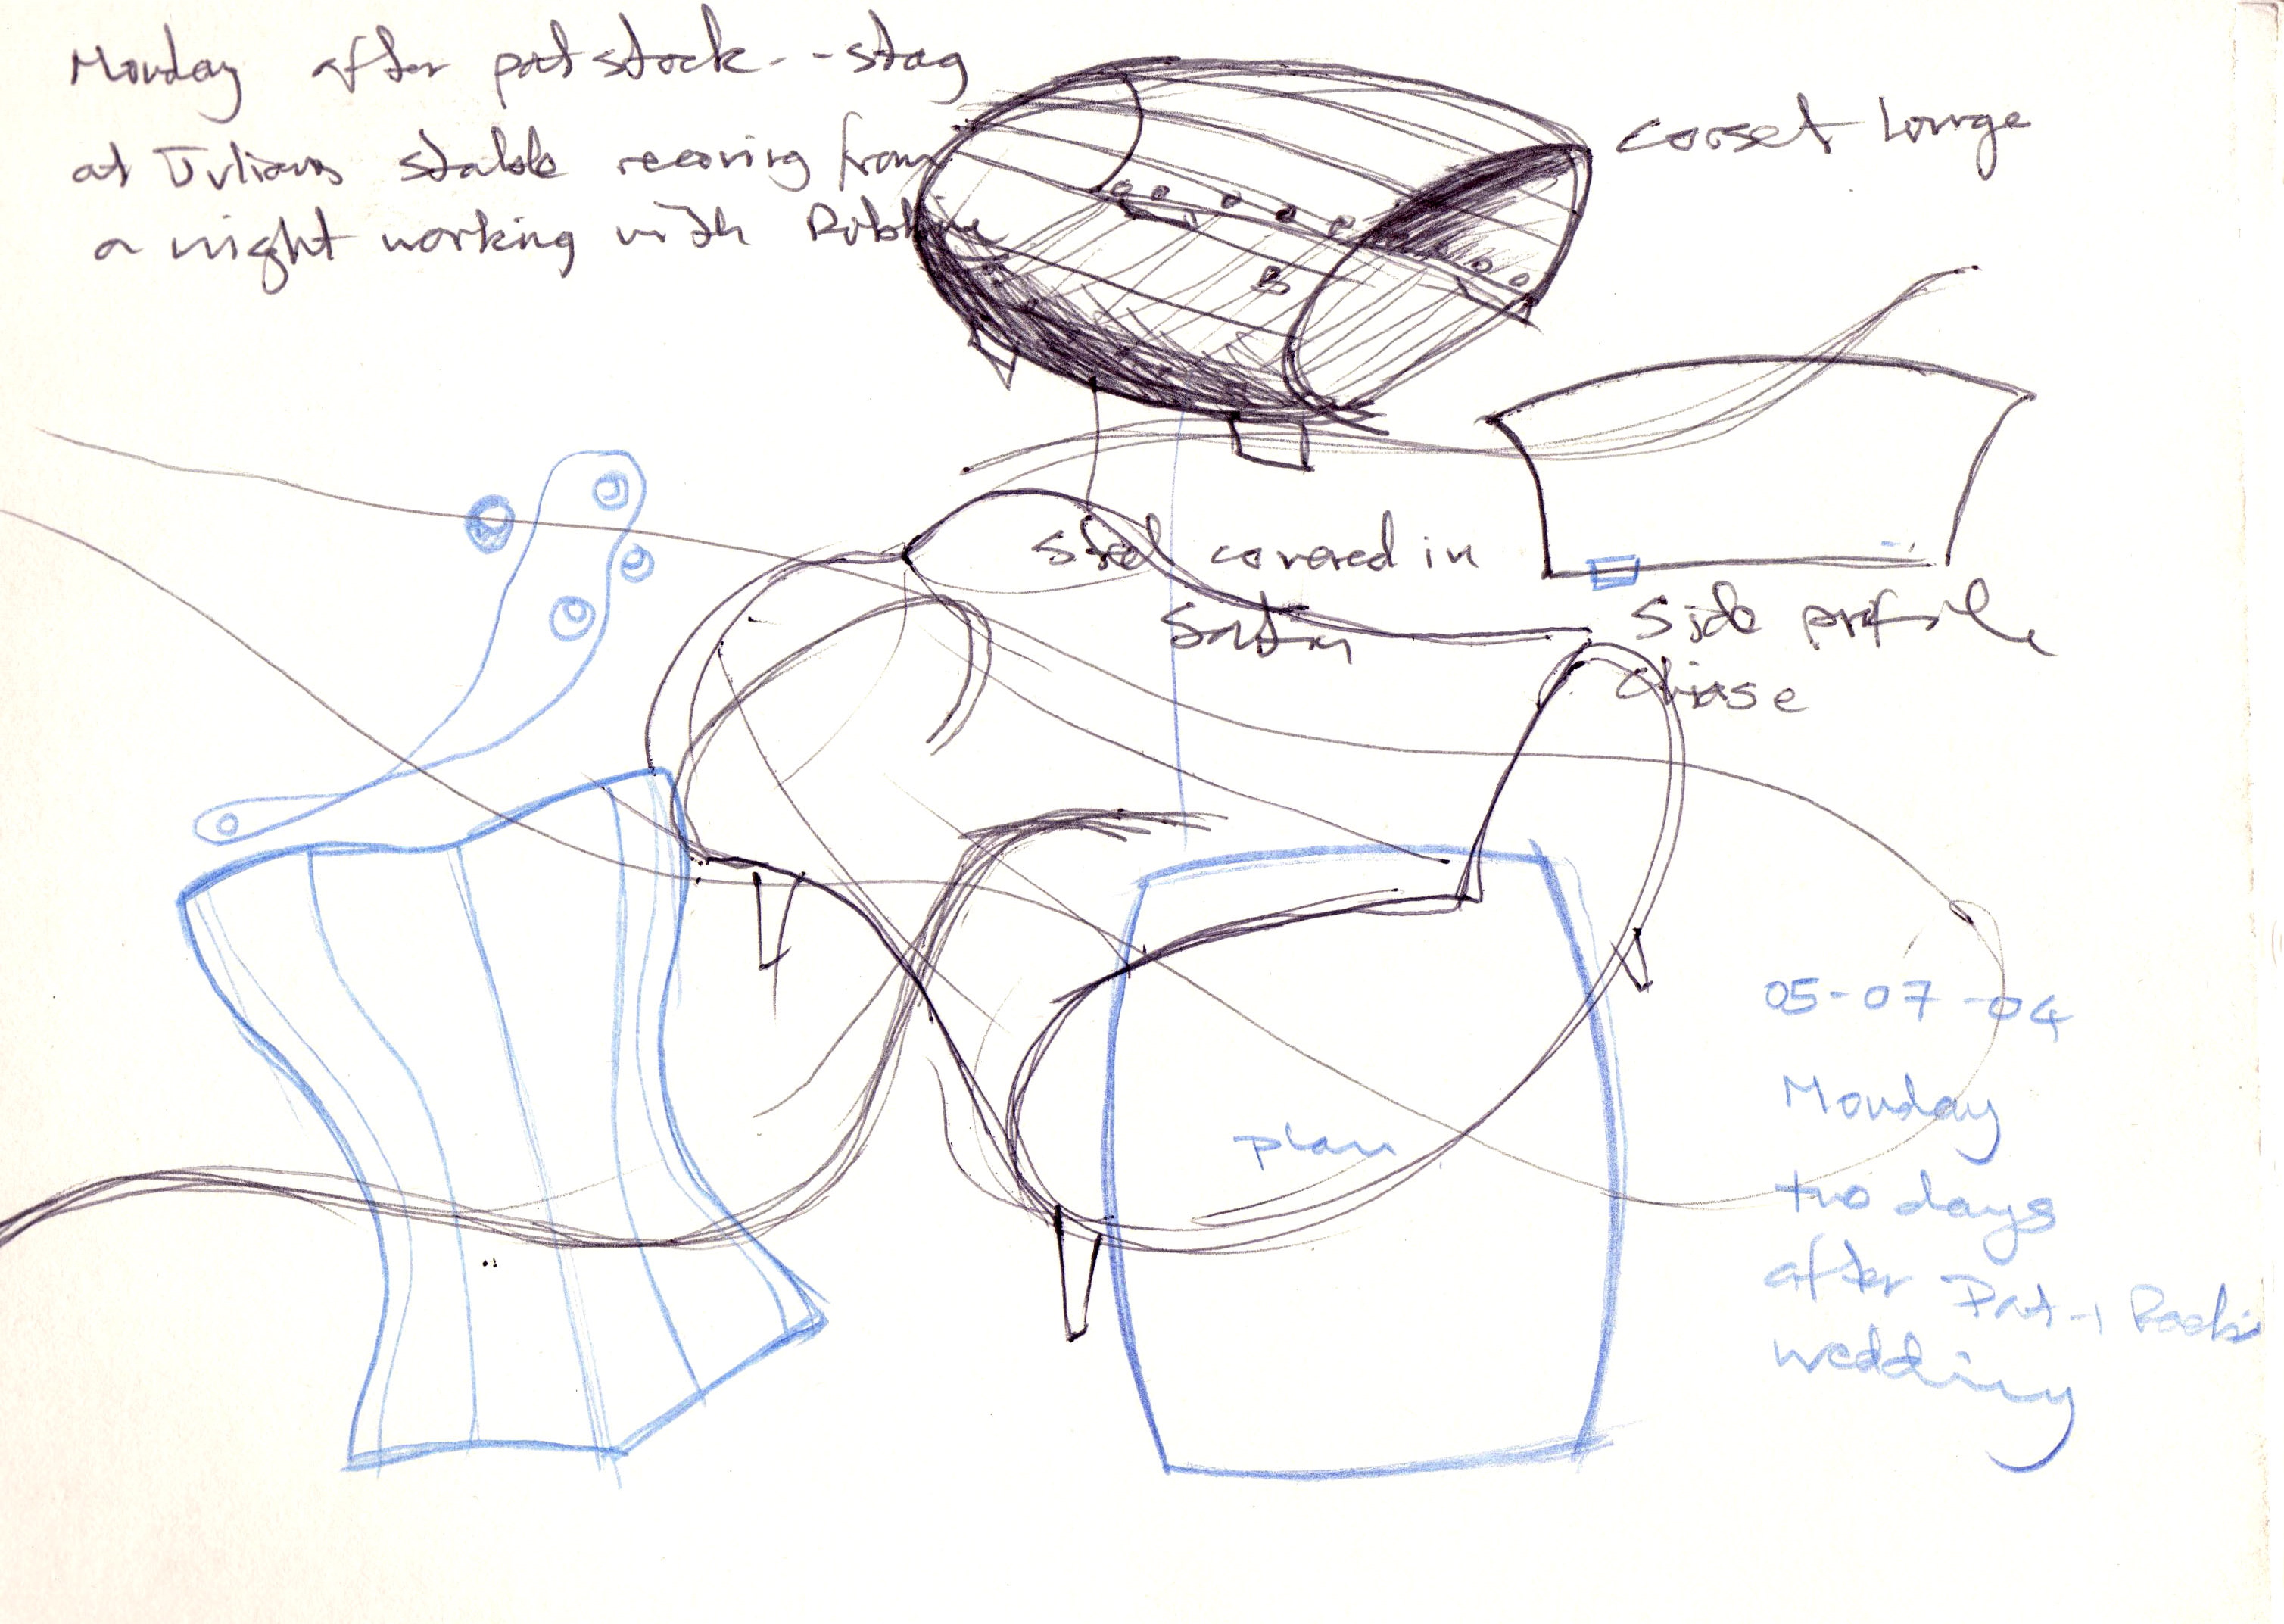 Monday after patstock - - stag
at Julians stable recovring from
a night working with
corset Lounge
steel covered in
Satin
side profile
chiase
plan
05-07-04
Monday
two days
after Pat
wedding